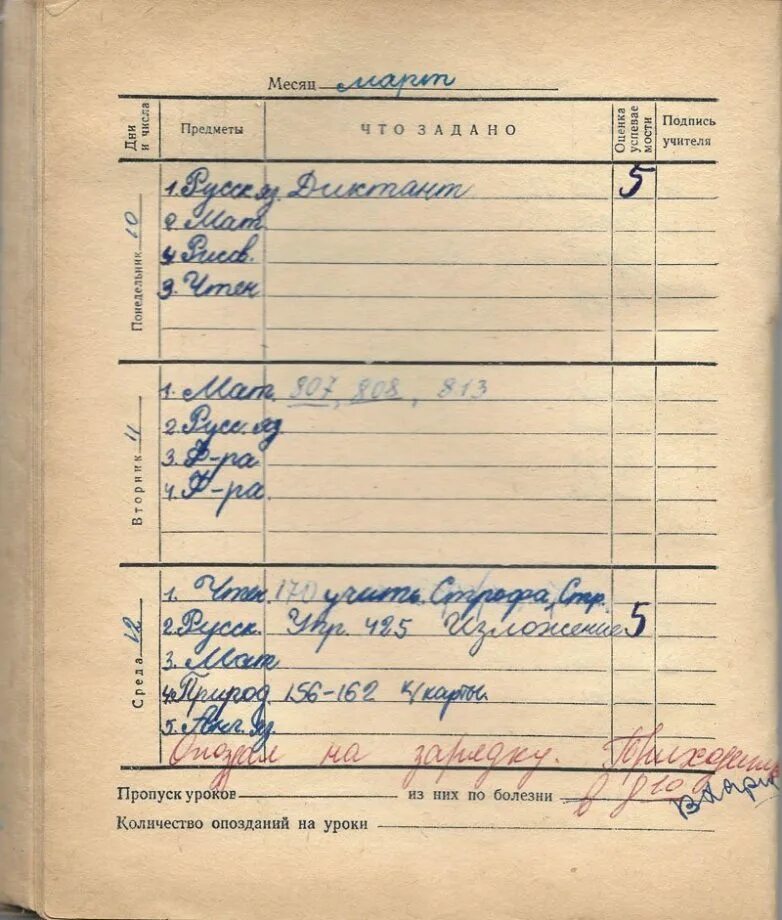 Месяц март
Дни и числа Предметы ЧТО ЗАДАНО Оценка успевае мости Подпись учителя
Понедельник 10
1. Русск яз. Диктант 5
2 Мат.
4 Рисов.
3. Чтен
Вторник 11
1. Мат. 807, 808, 813
2 Русс. яз
3. Ф-ра
4. Ф-ра.
Среда 12
1. Чтен. 170 учить. Строфа, Стр.
2. Русск. Упр. 425 Изложение 5
3. Мат
4. Природ 156-162 к/карты.
5. Анг. яз.
Опоздал на зарядку. Приходить
в 8 10
Пропуск уроков из них по болезни
Количество опозданий на уроки